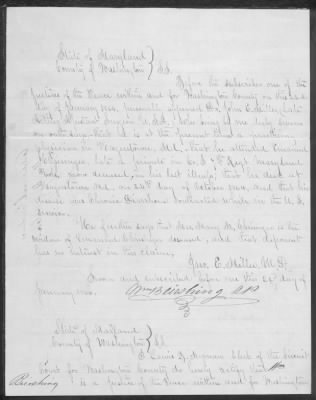 State of Maryland
County of Washington } SS.
Before the subscriber one of the
Justices of the Peace within and for Washington County on this
day of January personally appeared Dr. John E.
who being by me duly sworn
on oath says that he is at the present time a practicing
physician in Hagerstown Md. that he attended Emanuel
late a private in Co. Regt Maryland
now deceased, in his last illness, that he died at
Md. on day of October and that his
disease was Chronic Diarrhoea contracted while in the U. S.
service.
He further says that Mrs. Mary M. is the
widow of Emanuel deceased, and that deponent
has no interest in this claim.
Jno. E. M. D.
Sworn and subscribed before me this 22 day of
January
Wm Breishing J.P.
State of Maryland
County of Washington } SS
I Lewis B. Nyman Clerk of the Circuit
Court for Washington County do hereby certify that Wm
Breishing is a Justice of the Peace within and for Washington